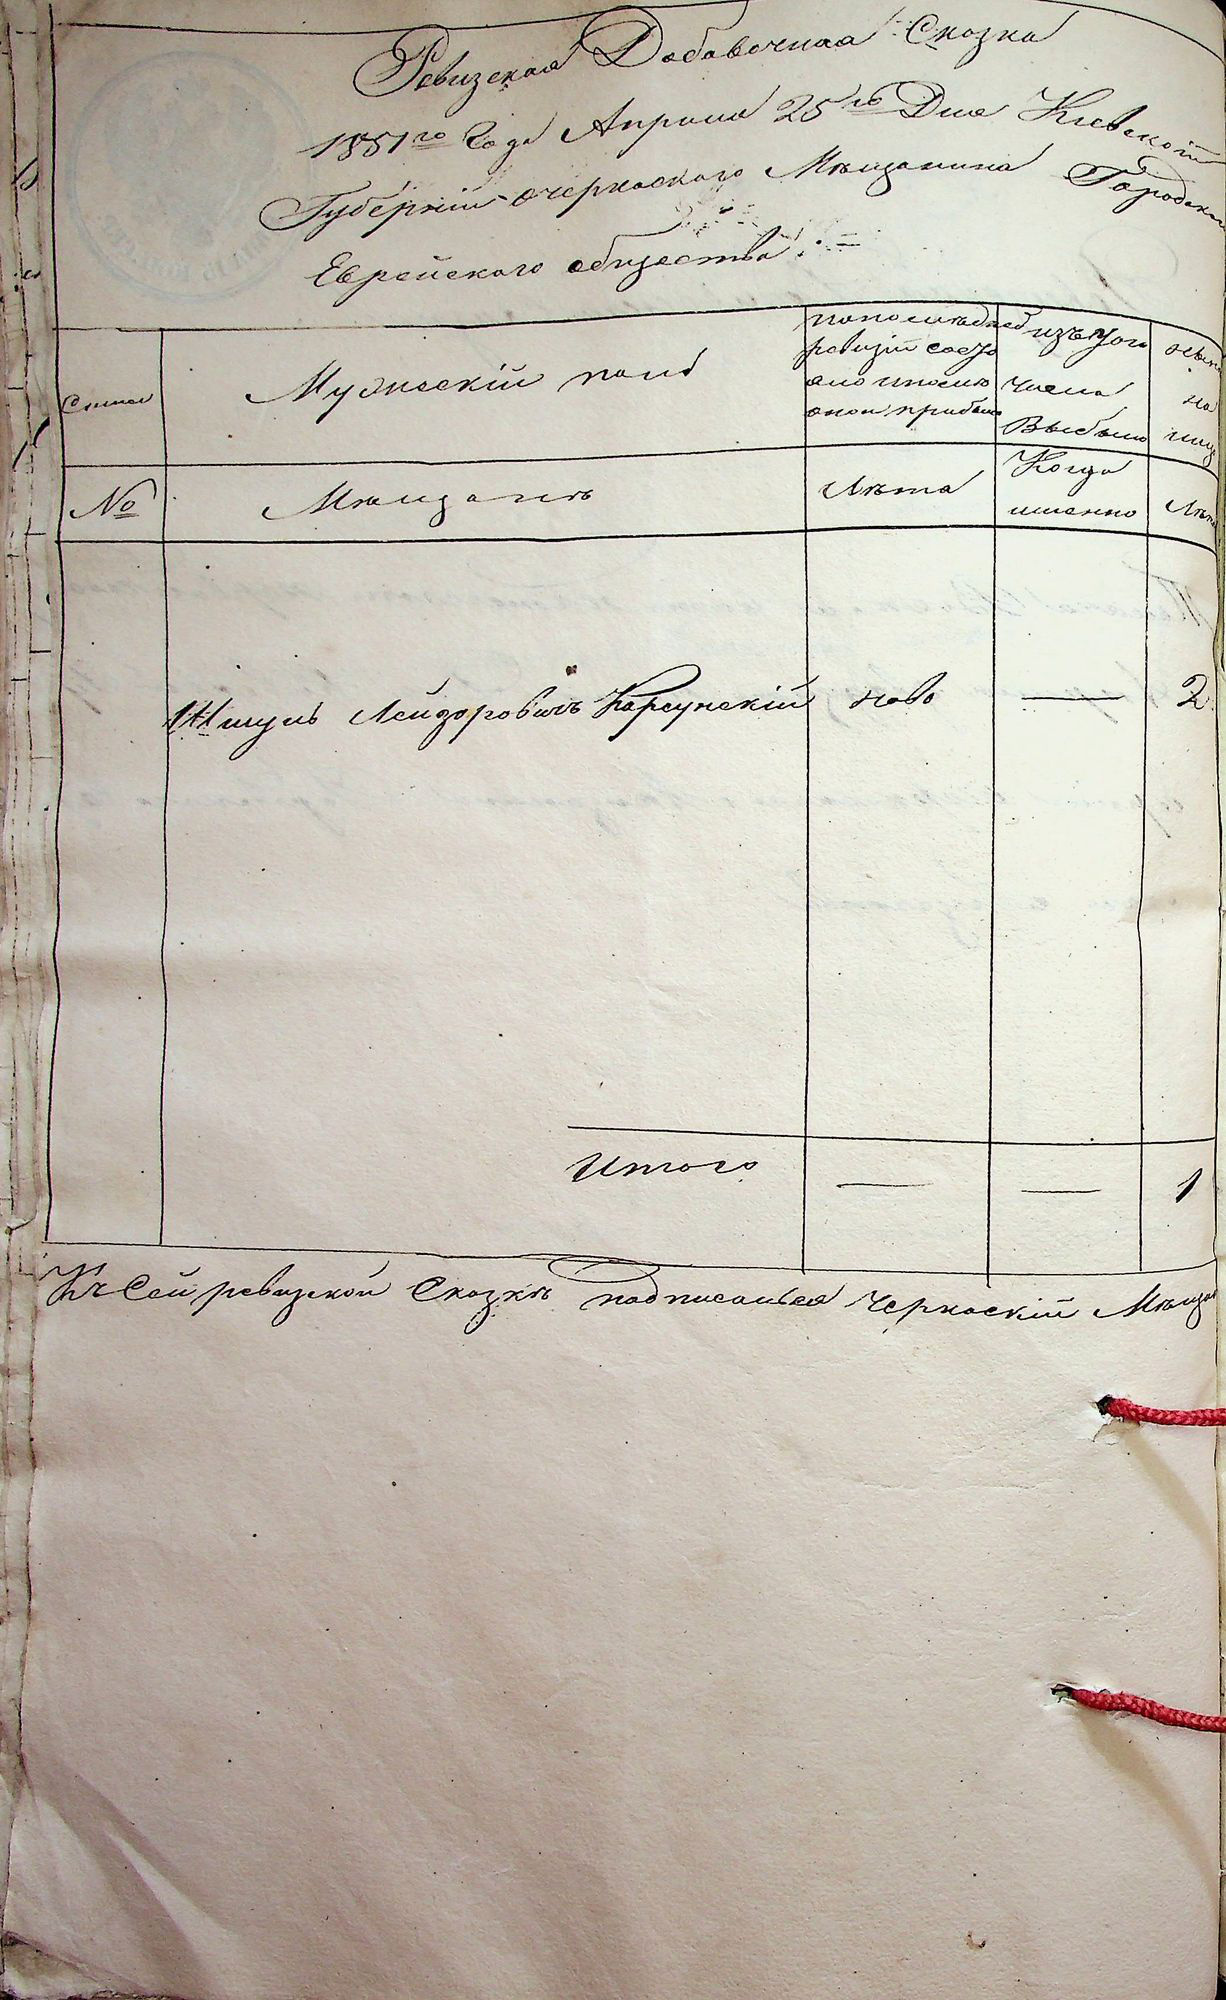 Ревизская Добавочная Сказка
1851го Года Апреля 25го Дня Кіевской
Губерніи Черкаского Мѣщанина Городскаго
Еврейского общества
Мужескій полъ
По последней ревизіи состояло и после оной прибыло
изъ того числа Выбыло
ныне на лицо
№
Мѣщане
Лѣта
Когда именно
Лѣта
Шмуль Лейзоровичъ Карсунскій ново — 2
Итого — — 1
Къ Сей ревизской Сказкѣ подписался Черкаскій Мѣщан